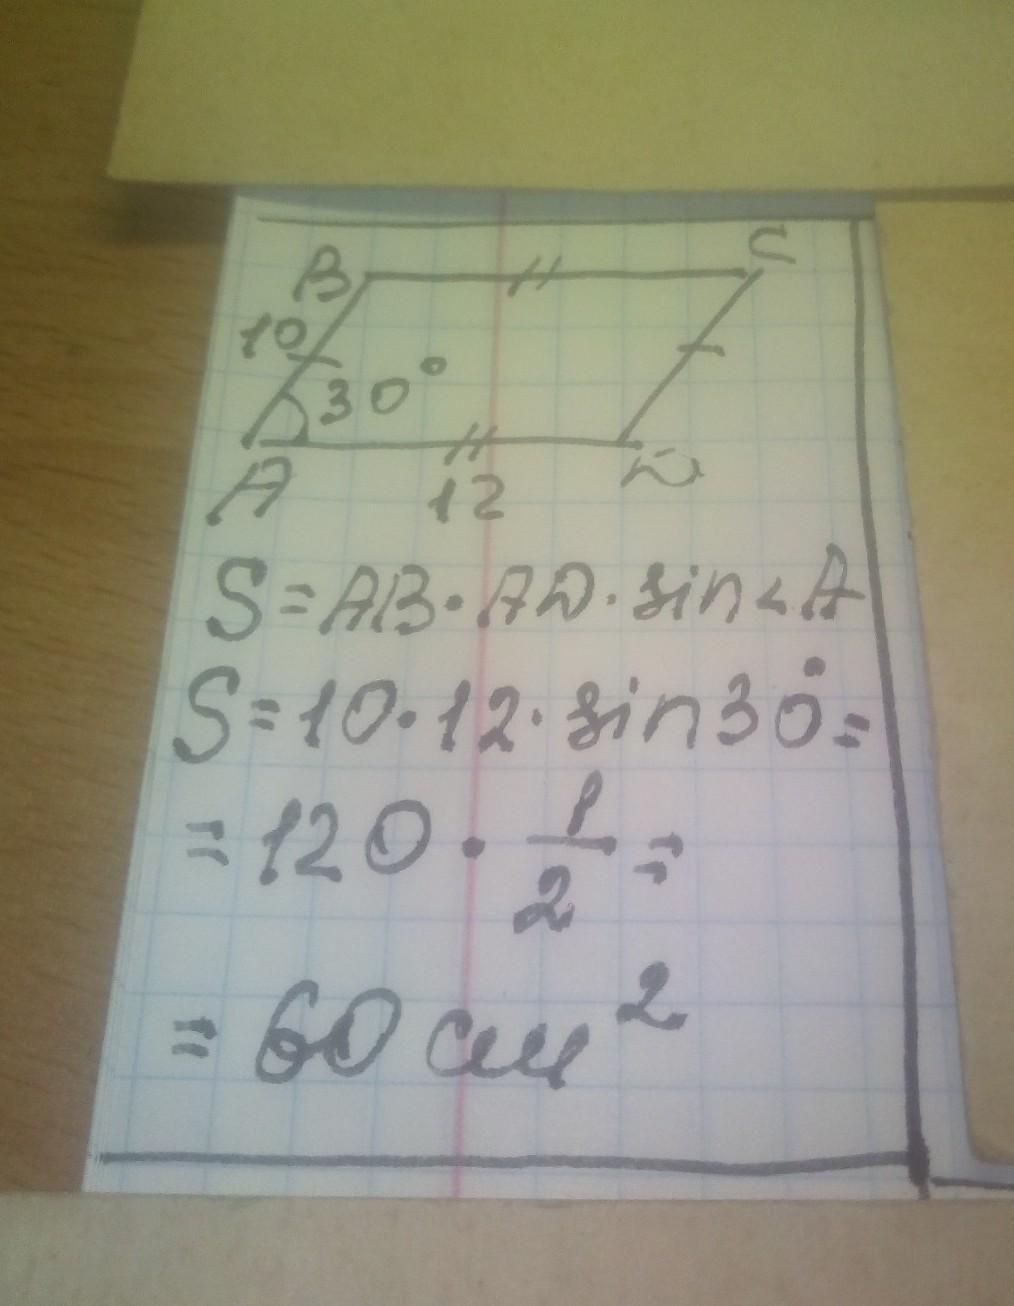 B C
10
30°
A D
12
S = AB · AD · sin ∠A
S = 10 · 12 · sin 30° =
= 120 · 1/2 =
= 60 см²